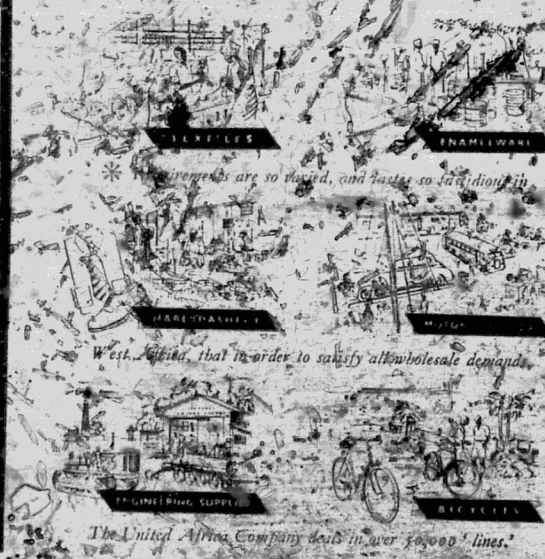 TEXTILES
ENAMELWARE
* Requirements are so varied, and tastes so fastidious in
HABERDASHERY
MOTOR
West Africa, that in order to satisfy all wholesale demands,
ENGINEERING SUPPLIES
BICYCLES
The United Africa Company deals in over 50,000 ' lines.'